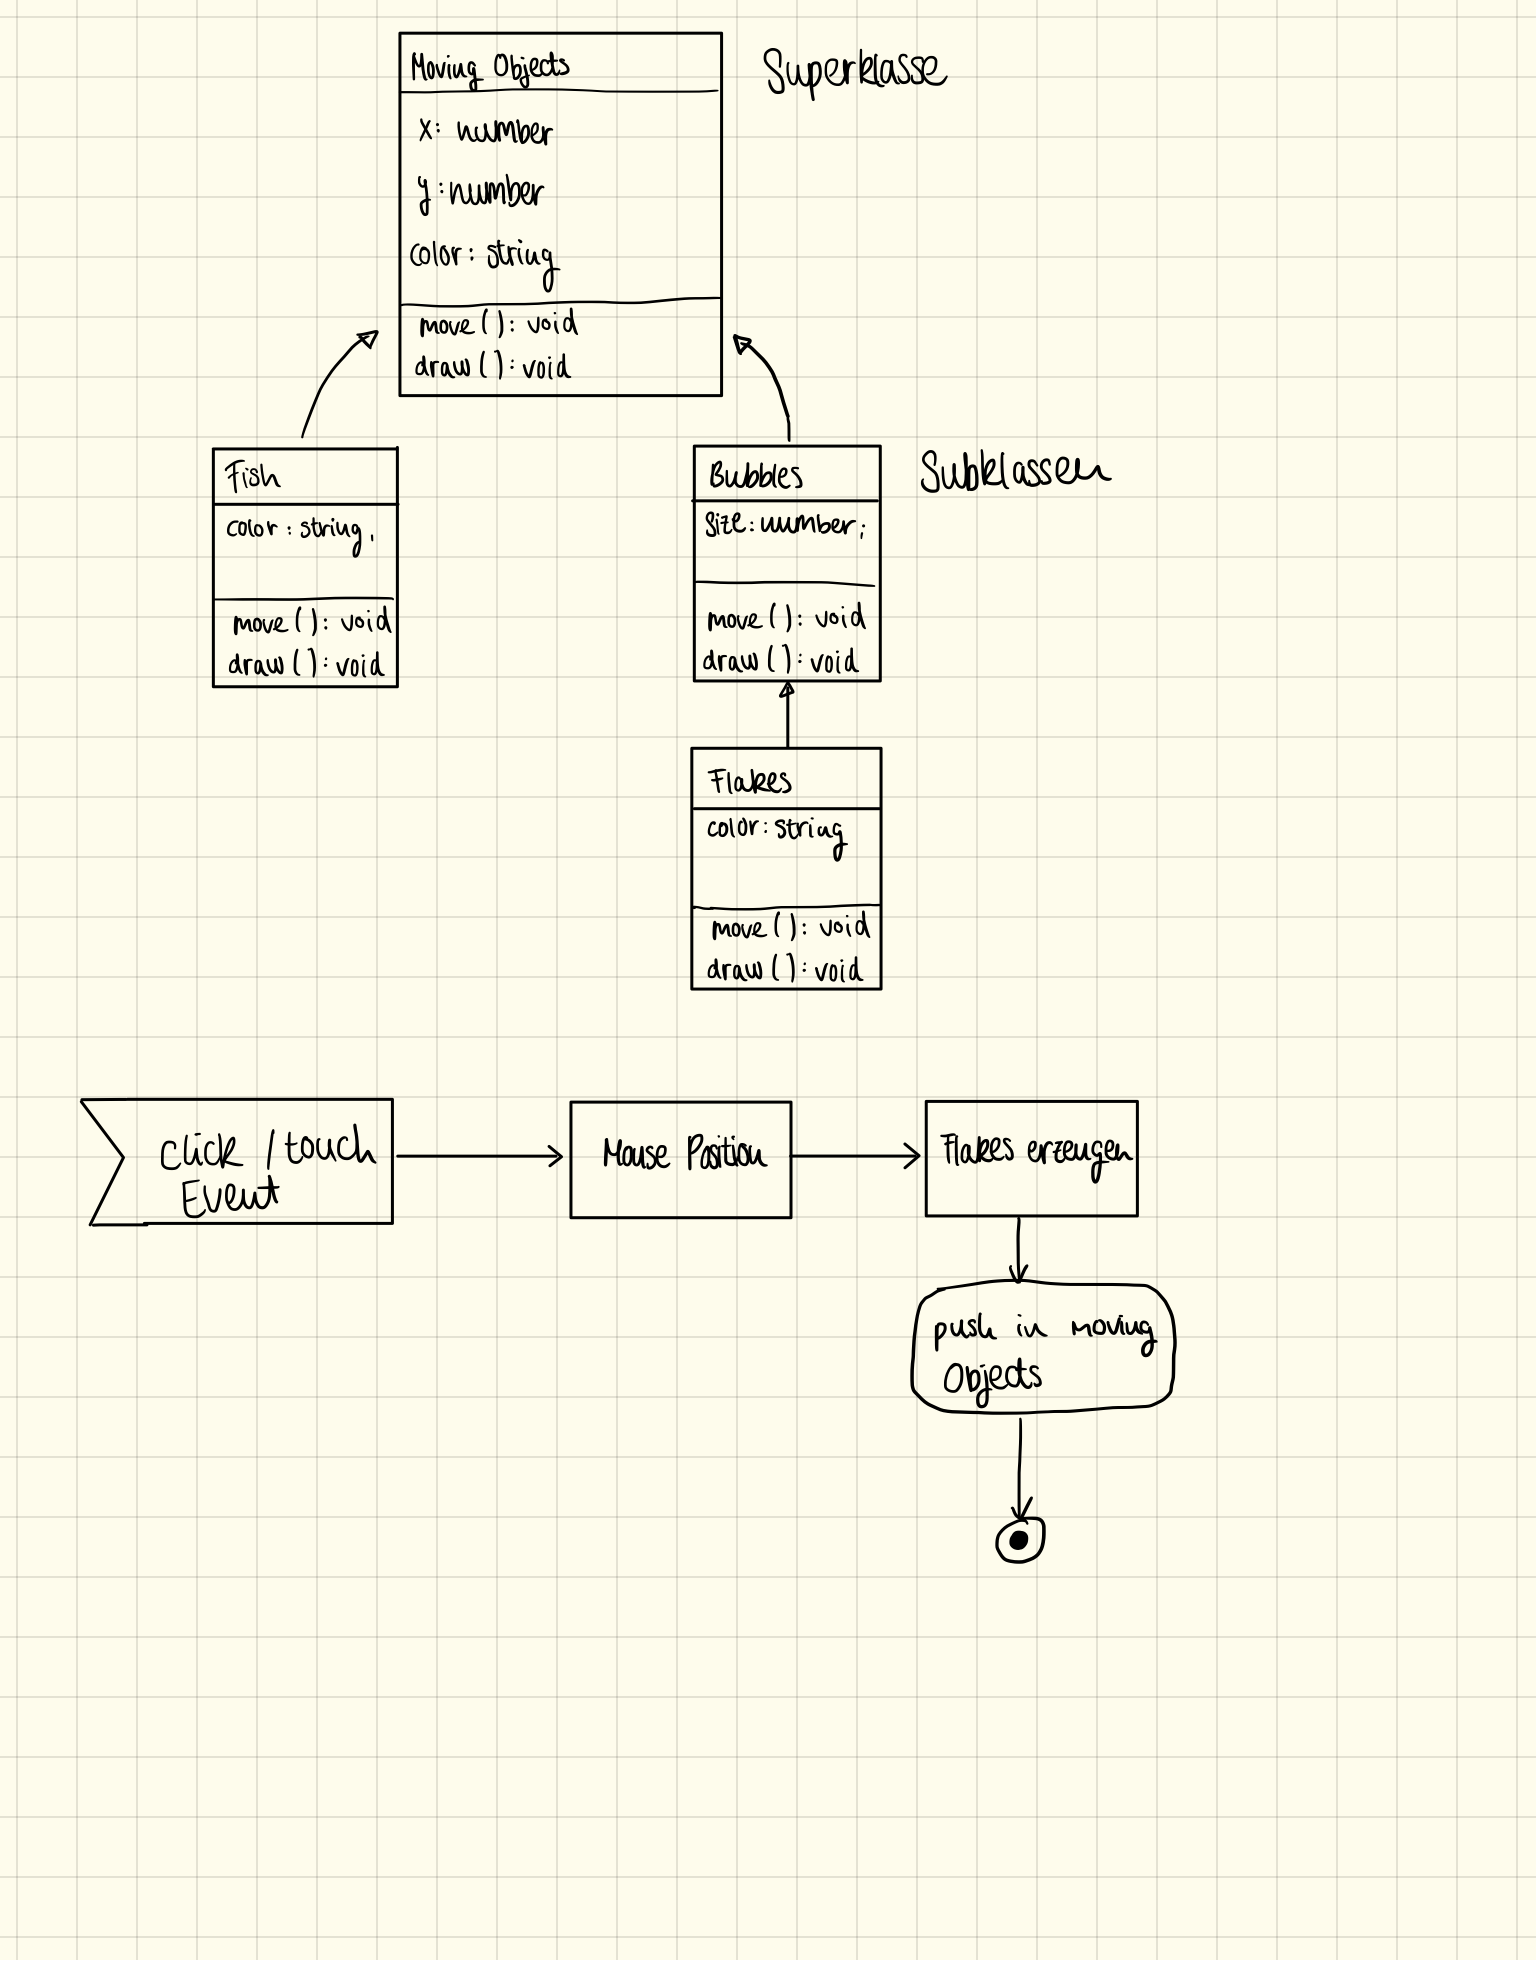 Moving Objects
Superklasse
x: number
y: number
color: string
move(): void
draw(): void
Fish
color: string,
move(): void
draw(): void
Bubbles
Subklassen
Size: number;
move(): void
draw(): void
Flakes
color: string
move(): void
draw(): void
click / touch
Event
Mouse Position
Flakes erzeugen
push in moving
Objects